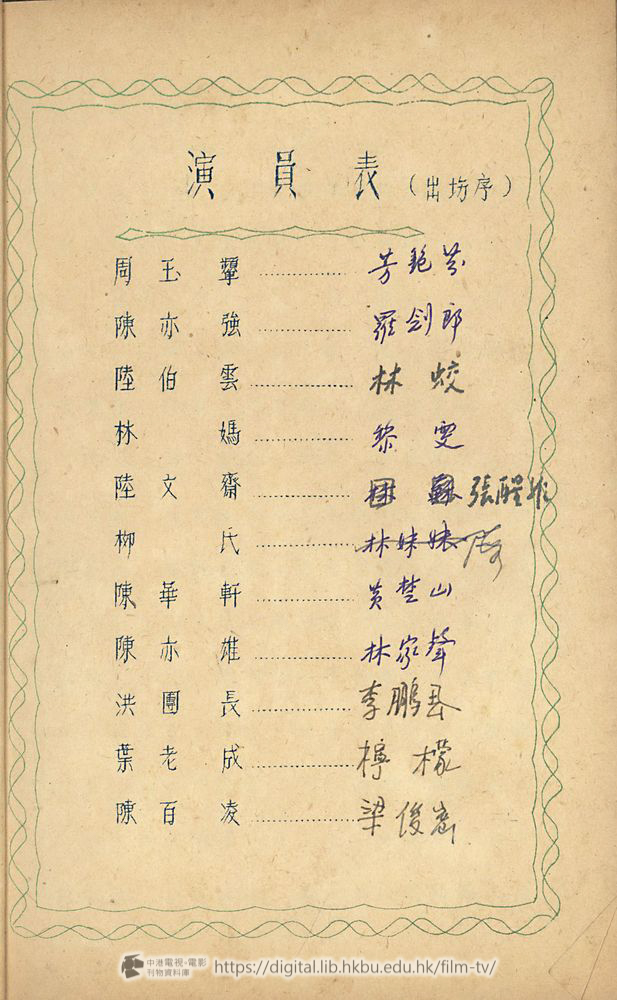 演員表（出場序）
周玉翬 芳艶芬
陳亦強 羅劍郎
陸伯雲 林蛟
林媽 黎雯
陸文齋 張醒非
柳氏 林妹妹
陳華軒 黃楚山
陳亦雄 林家聲
洪團長 李鵬
葉老成 檸檬
陳百凌 梁俊
中港電視·電影刊物資料庫 https://digital.lib.hkbu.edu.hk/film-tv/